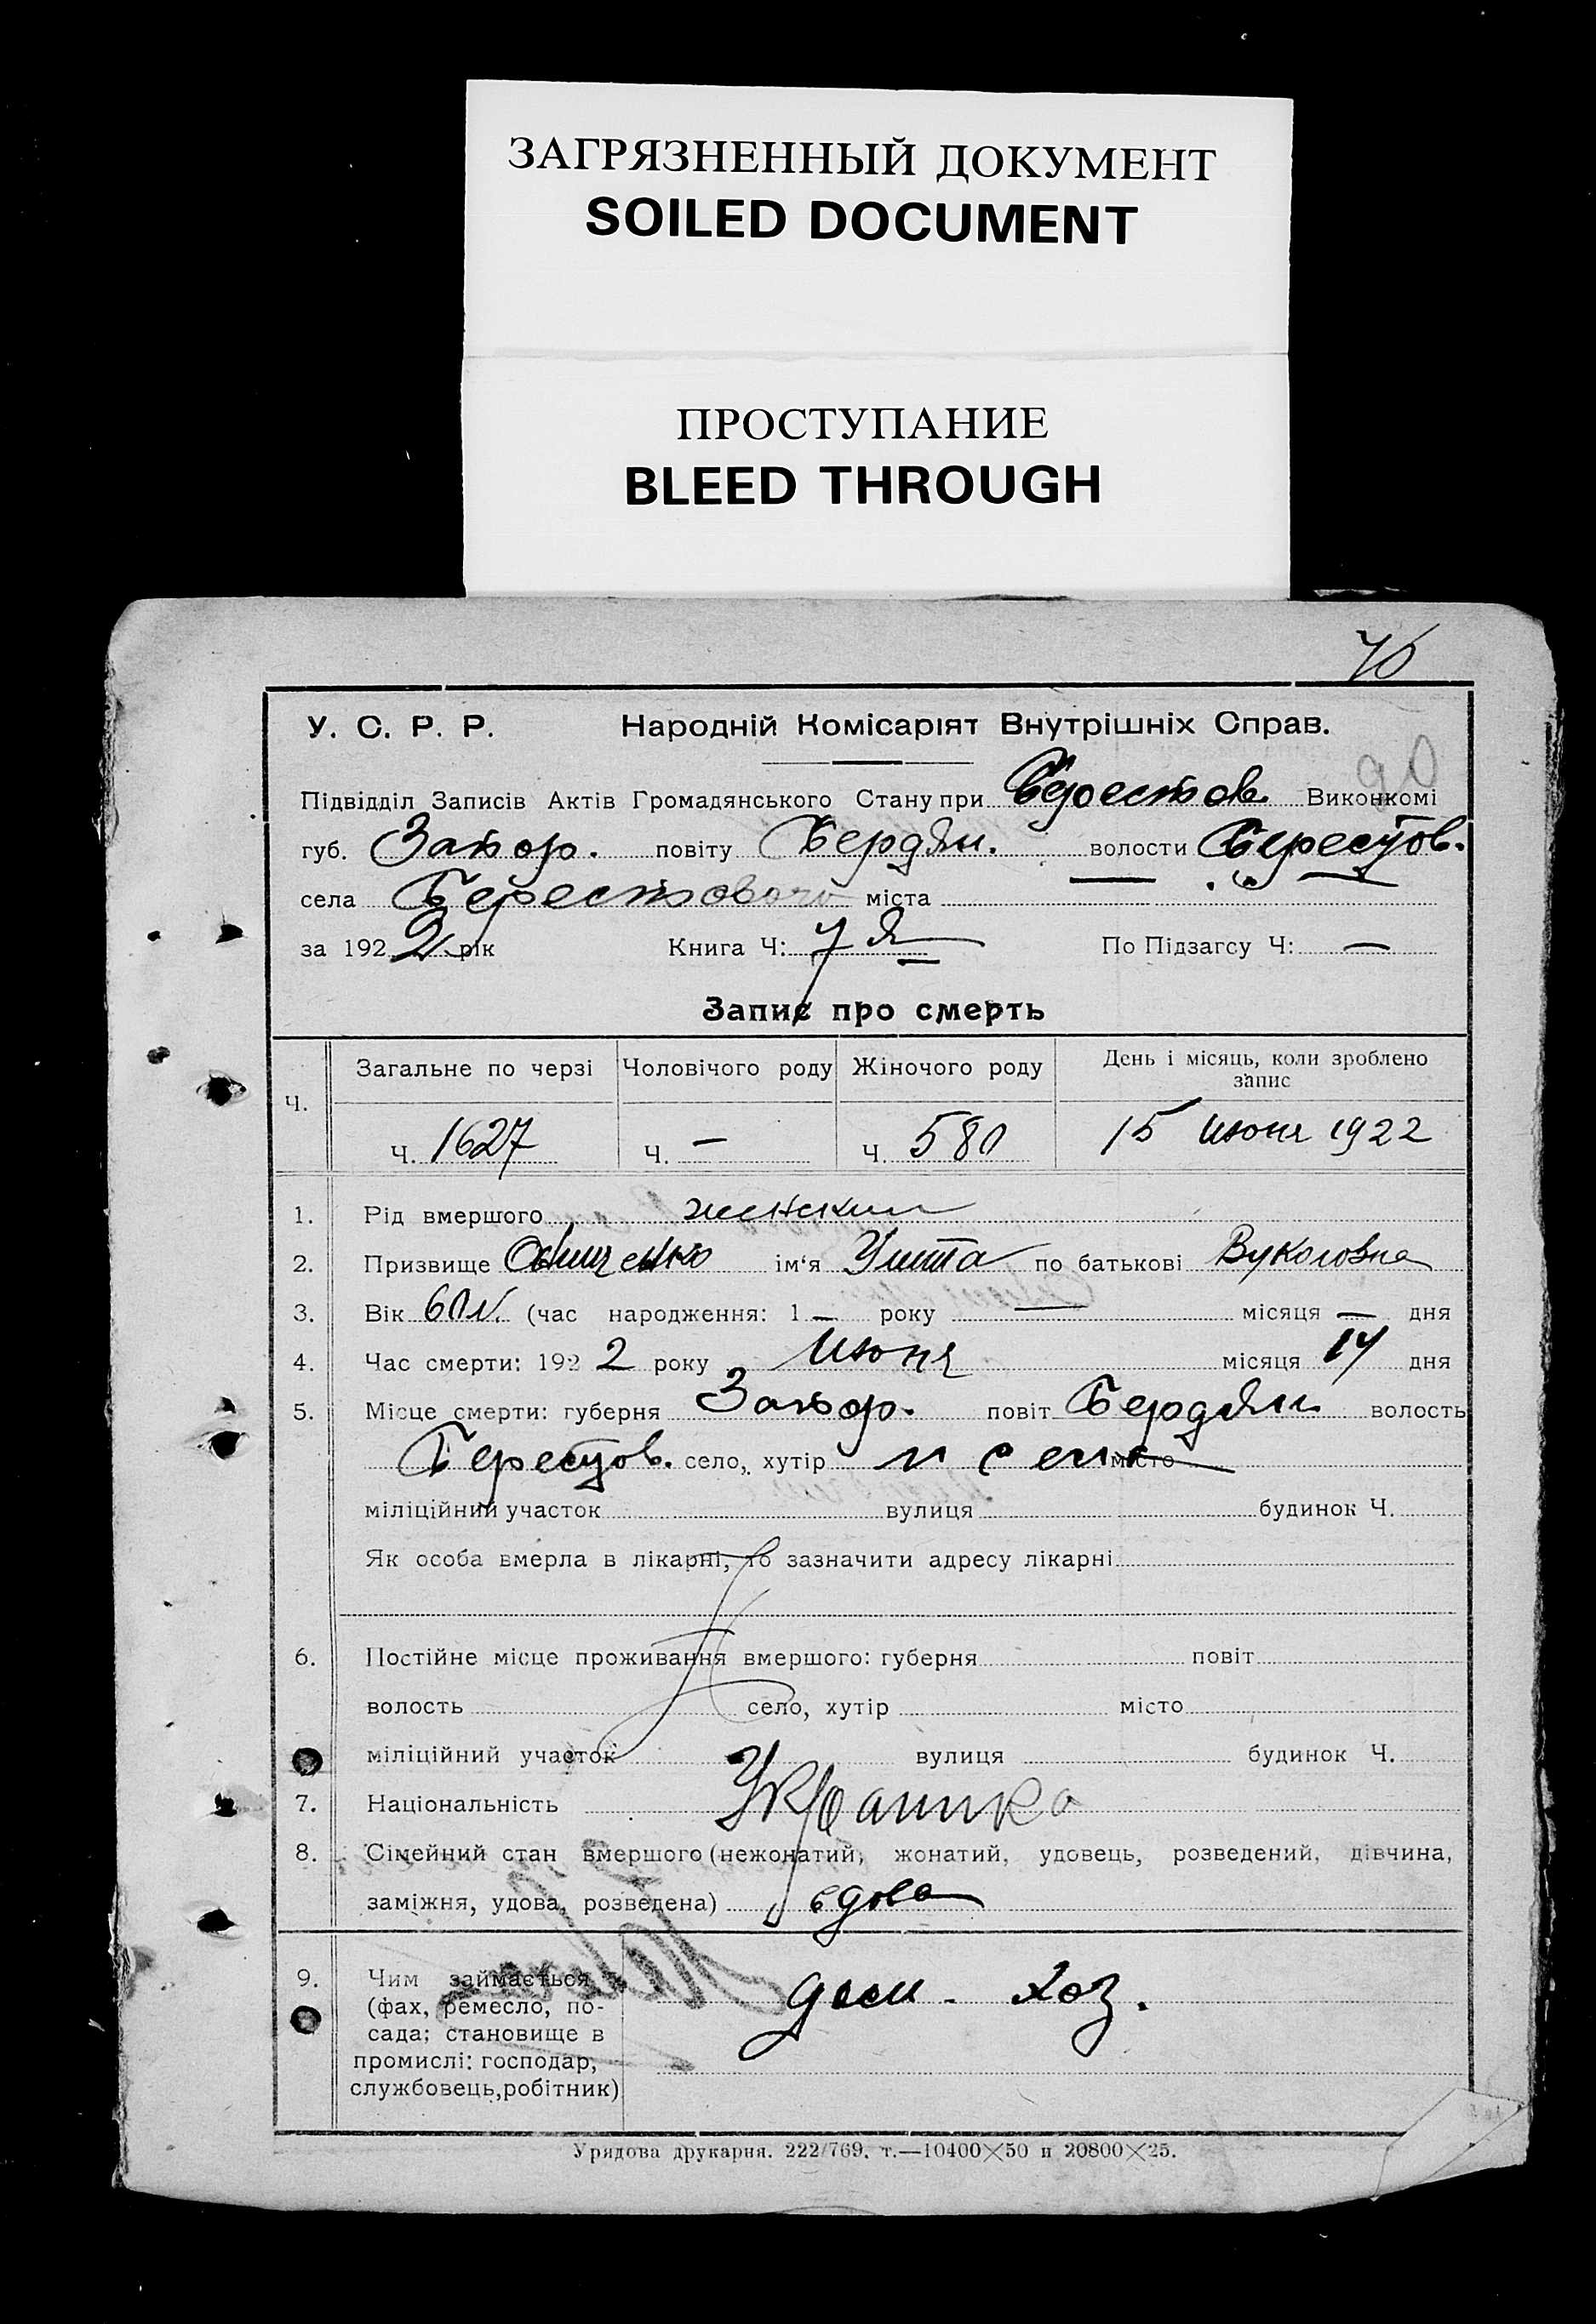 ЗАГРЯЗНЕННЫЙ ДОКУМЕНТ
SOILED DOCUMENT
ПРОСТУПАНИЕ
BLEED THROUGH
У. С. Р. Р. Народній Комісаріят Внутрішніх Справ.
90
Підвідділ Записів Актів Громадянського Стану при Берестов. Виконкомі
губ. Запор. повіту Бердян. волости Берестов.
села Берестового міста
за 1922 рік Книга Ч: 7 По Підзагсу Ч: —
Запис про смерть
Ч. Загальне по черзі Чоловічого роду Жіночого роду День і місяць, коли зроблено запис
Ч. 1627 Ч. — Ч. 580 15 июня 1922
1. Рід вмершого женский
2. Призвище ім'я по батькові Вуколовна
3. Вік 60 л. (час народження: 1 — року — місяця — дня
4. Час смерти: 1922 року Июня місяця 14 дня
5. Місце смерти: губерня Запор. повіт Бердян волость
Берестов. село, хутір місто
міліційний участок вулиця будинок Ч.
Як особа вмерла в лікарні, то зазначити адресу лікарні
6. Постійне місце проживання вмершого: губерня повіт
волость село, хутір місто
міліційний участок вулиця будинок Ч.
7. Національність Украинка
8. Сімейний стан вмершого (нежонатий, жонатий, удовець, розведений, дівчина,
заміжня, удова, розведена) вдова
9. Чим займається дом. хоз.
(фах, ремесло, по-
сада; становище в
промислі: господар,
службовець, робітник)
Урядова друкарня. 222/769. т.—10400×50 и 20800×25.